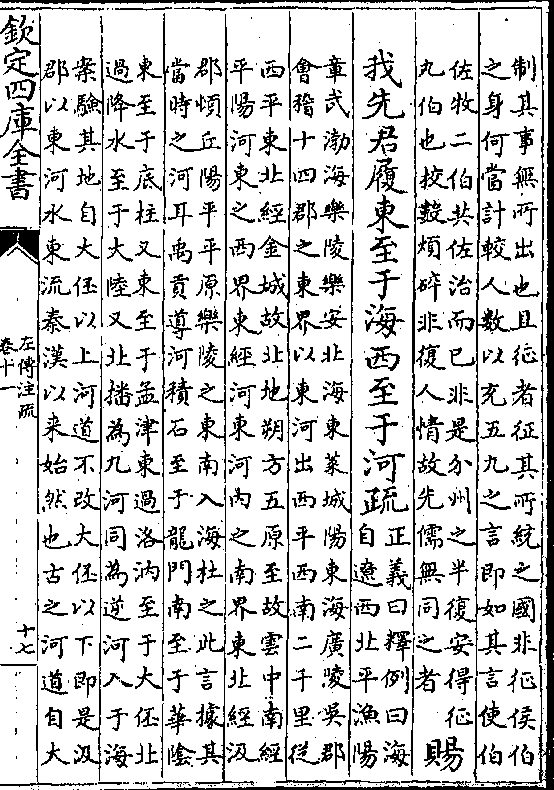 制其事無所出也且征者征其所統之國非征侯伯
之身何當計較人數以充五九之言即如其言使伯
佐牧二伯共佐治而已非是分州之半復安得征
九伯也挍數煩碎非復人情故先儒無同之者
賜
我先君履東至于海西至于河疏
正義曰釋例曰海
自遼西北平漁陽
章武渤海樂陵樂安北海東萊城陽東海廣陵吳郡
會稽十四郡之東界以東河出西平西南二千里從
西平東北經金城故北地朔方五原至故雲中南經
平陽河東之西界東經河東河內之南界東北經汲
郡頓丘陽平平原樂陵之東南入海杜之此言據其
當時之河耳禹貢導河積石至于龍門南至于華陰
東至于底柱又東至于孟津東過洛汭至于大伾北
過降水至于大陸又北播為九河同為逆河入于海
案驗其地自大伾以上河道不改大伾以下即是汲
郡以東河水東流秦漢以来始然也古之河道自大
欽定四庫全書
左傳注疏
卷十一
十七